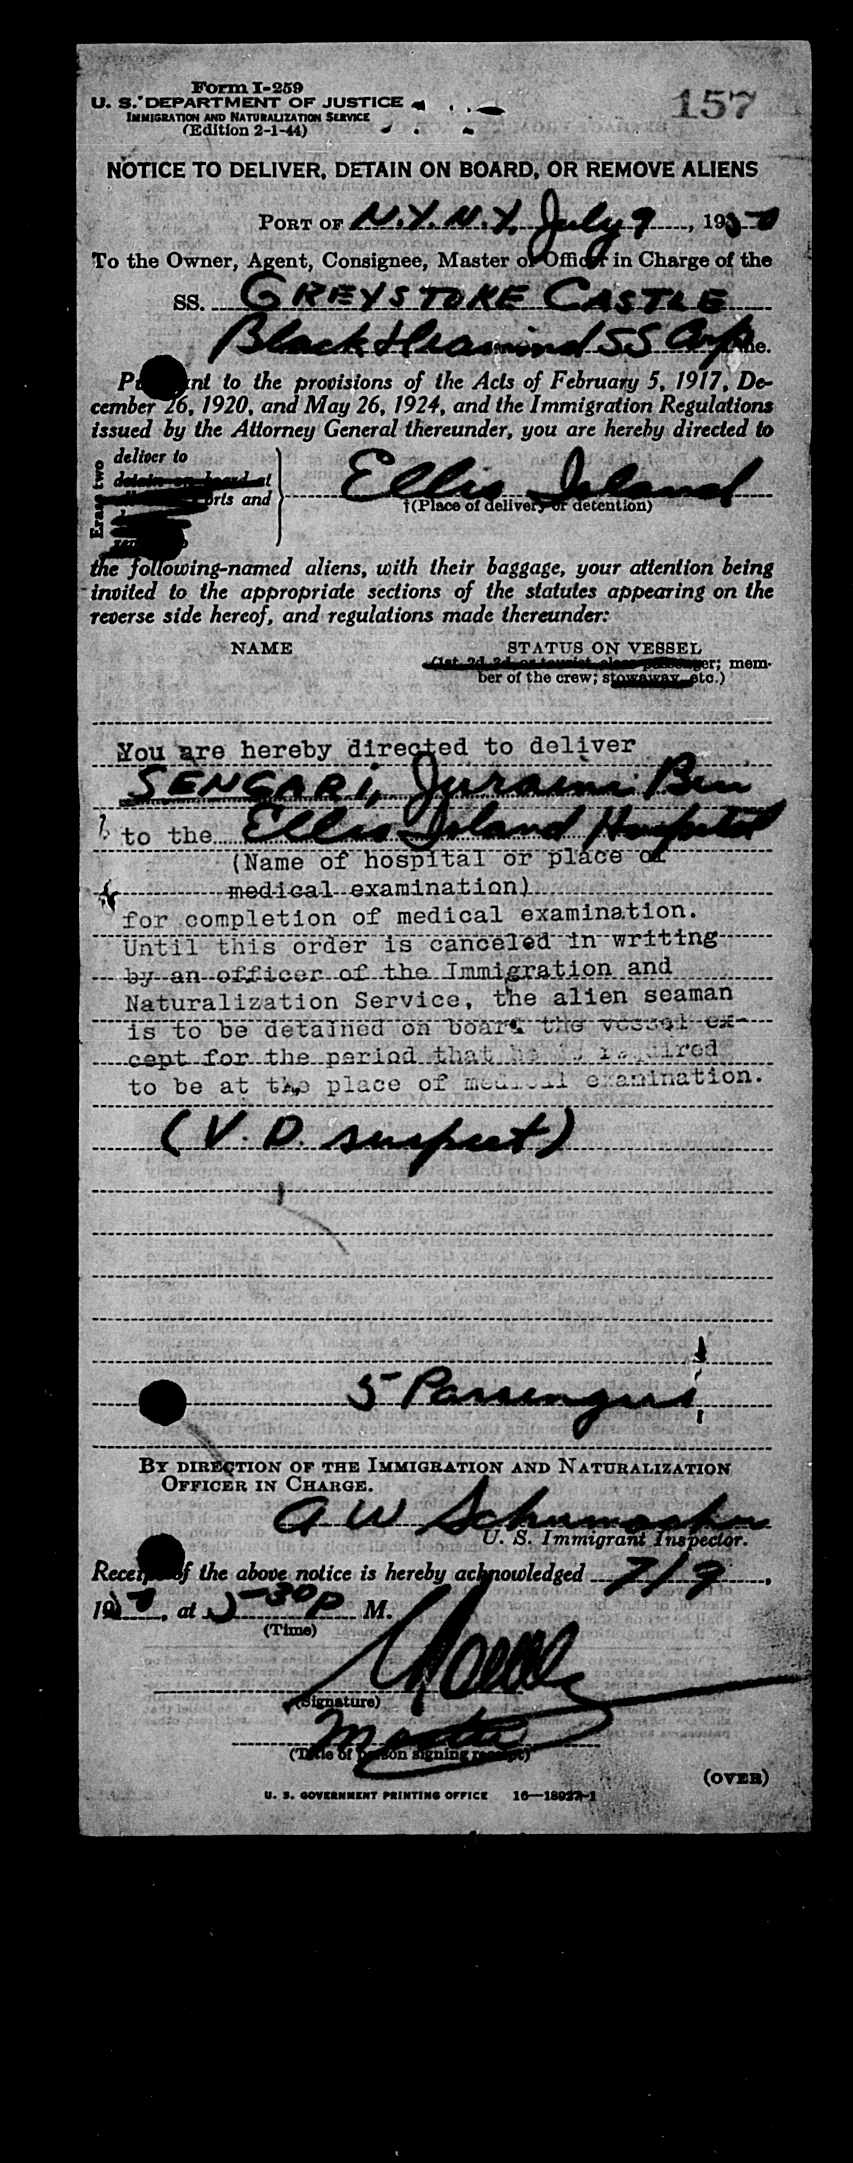 Form I-259
U. S. DEPARTMENT OF JUSTICE
IMMIGRATION AND NATURALIZATION SERVICE
(Edition 2-1-44)
157
NOTICE TO DELIVER, DETAIN ON BOARD, OR REMOVE ALIENS
PORT OF N.Y.N.Y. July 9, 1950
To the Owner, Agent, Consignee, Master or Officer in Charge of the
SS. GREYSTOKE CASTLE
Black Diamond SS Corp
Pursuant to the provisions of the Acts of February 5, 1917, De-
cember 26, 1920, and May 26, 1924, and the Immigration Regulations
issued by the Attorney General thereunder, you are hereby directed to
Erase two
deliver to
detain on board at
orts and
Ellis Island
†(Place of delivery or detention)
the following-named aliens, with their baggage, your attention being
invited to the appropriate sections of the statutes appearing on the
reverse side hereof, and regulations made thereunder:
NAME STATUS ON VESSEL
(1st, 2d, 3d, or tourist class passenger; mem-
ber of the crew; stowaway, etc.)
You are hereby directed to deliver
SENGARI, Juraimi Bin
to the Ellis Island Hospital
(Name of hospital or place of
medical examination)
for completion of medical examination.
Until this order is canceled in writing
by an officer of the Immigration and
Naturalization Service, the alien seaman
is to be detained on board the vessel ex-
cept for the period that he is required
to be at the place of medical examination.
(V. D. suspect)
5 Passengers
BY DIRECTION OF THE IMMIGRATION AND NATURALIZATION
OFFICER IN CHARGE.
A W Schumacher
U. S. Immigrant Inspector.
Receipt of the above notice is hereby acknowledged 7/9,
19, at 5-30 P M.
(Time)
(Signature)
Master
(Title of person signing receipt)
(OVER)
U. S. GOVERNMENT PRINTING OFFICE 16—18927-1